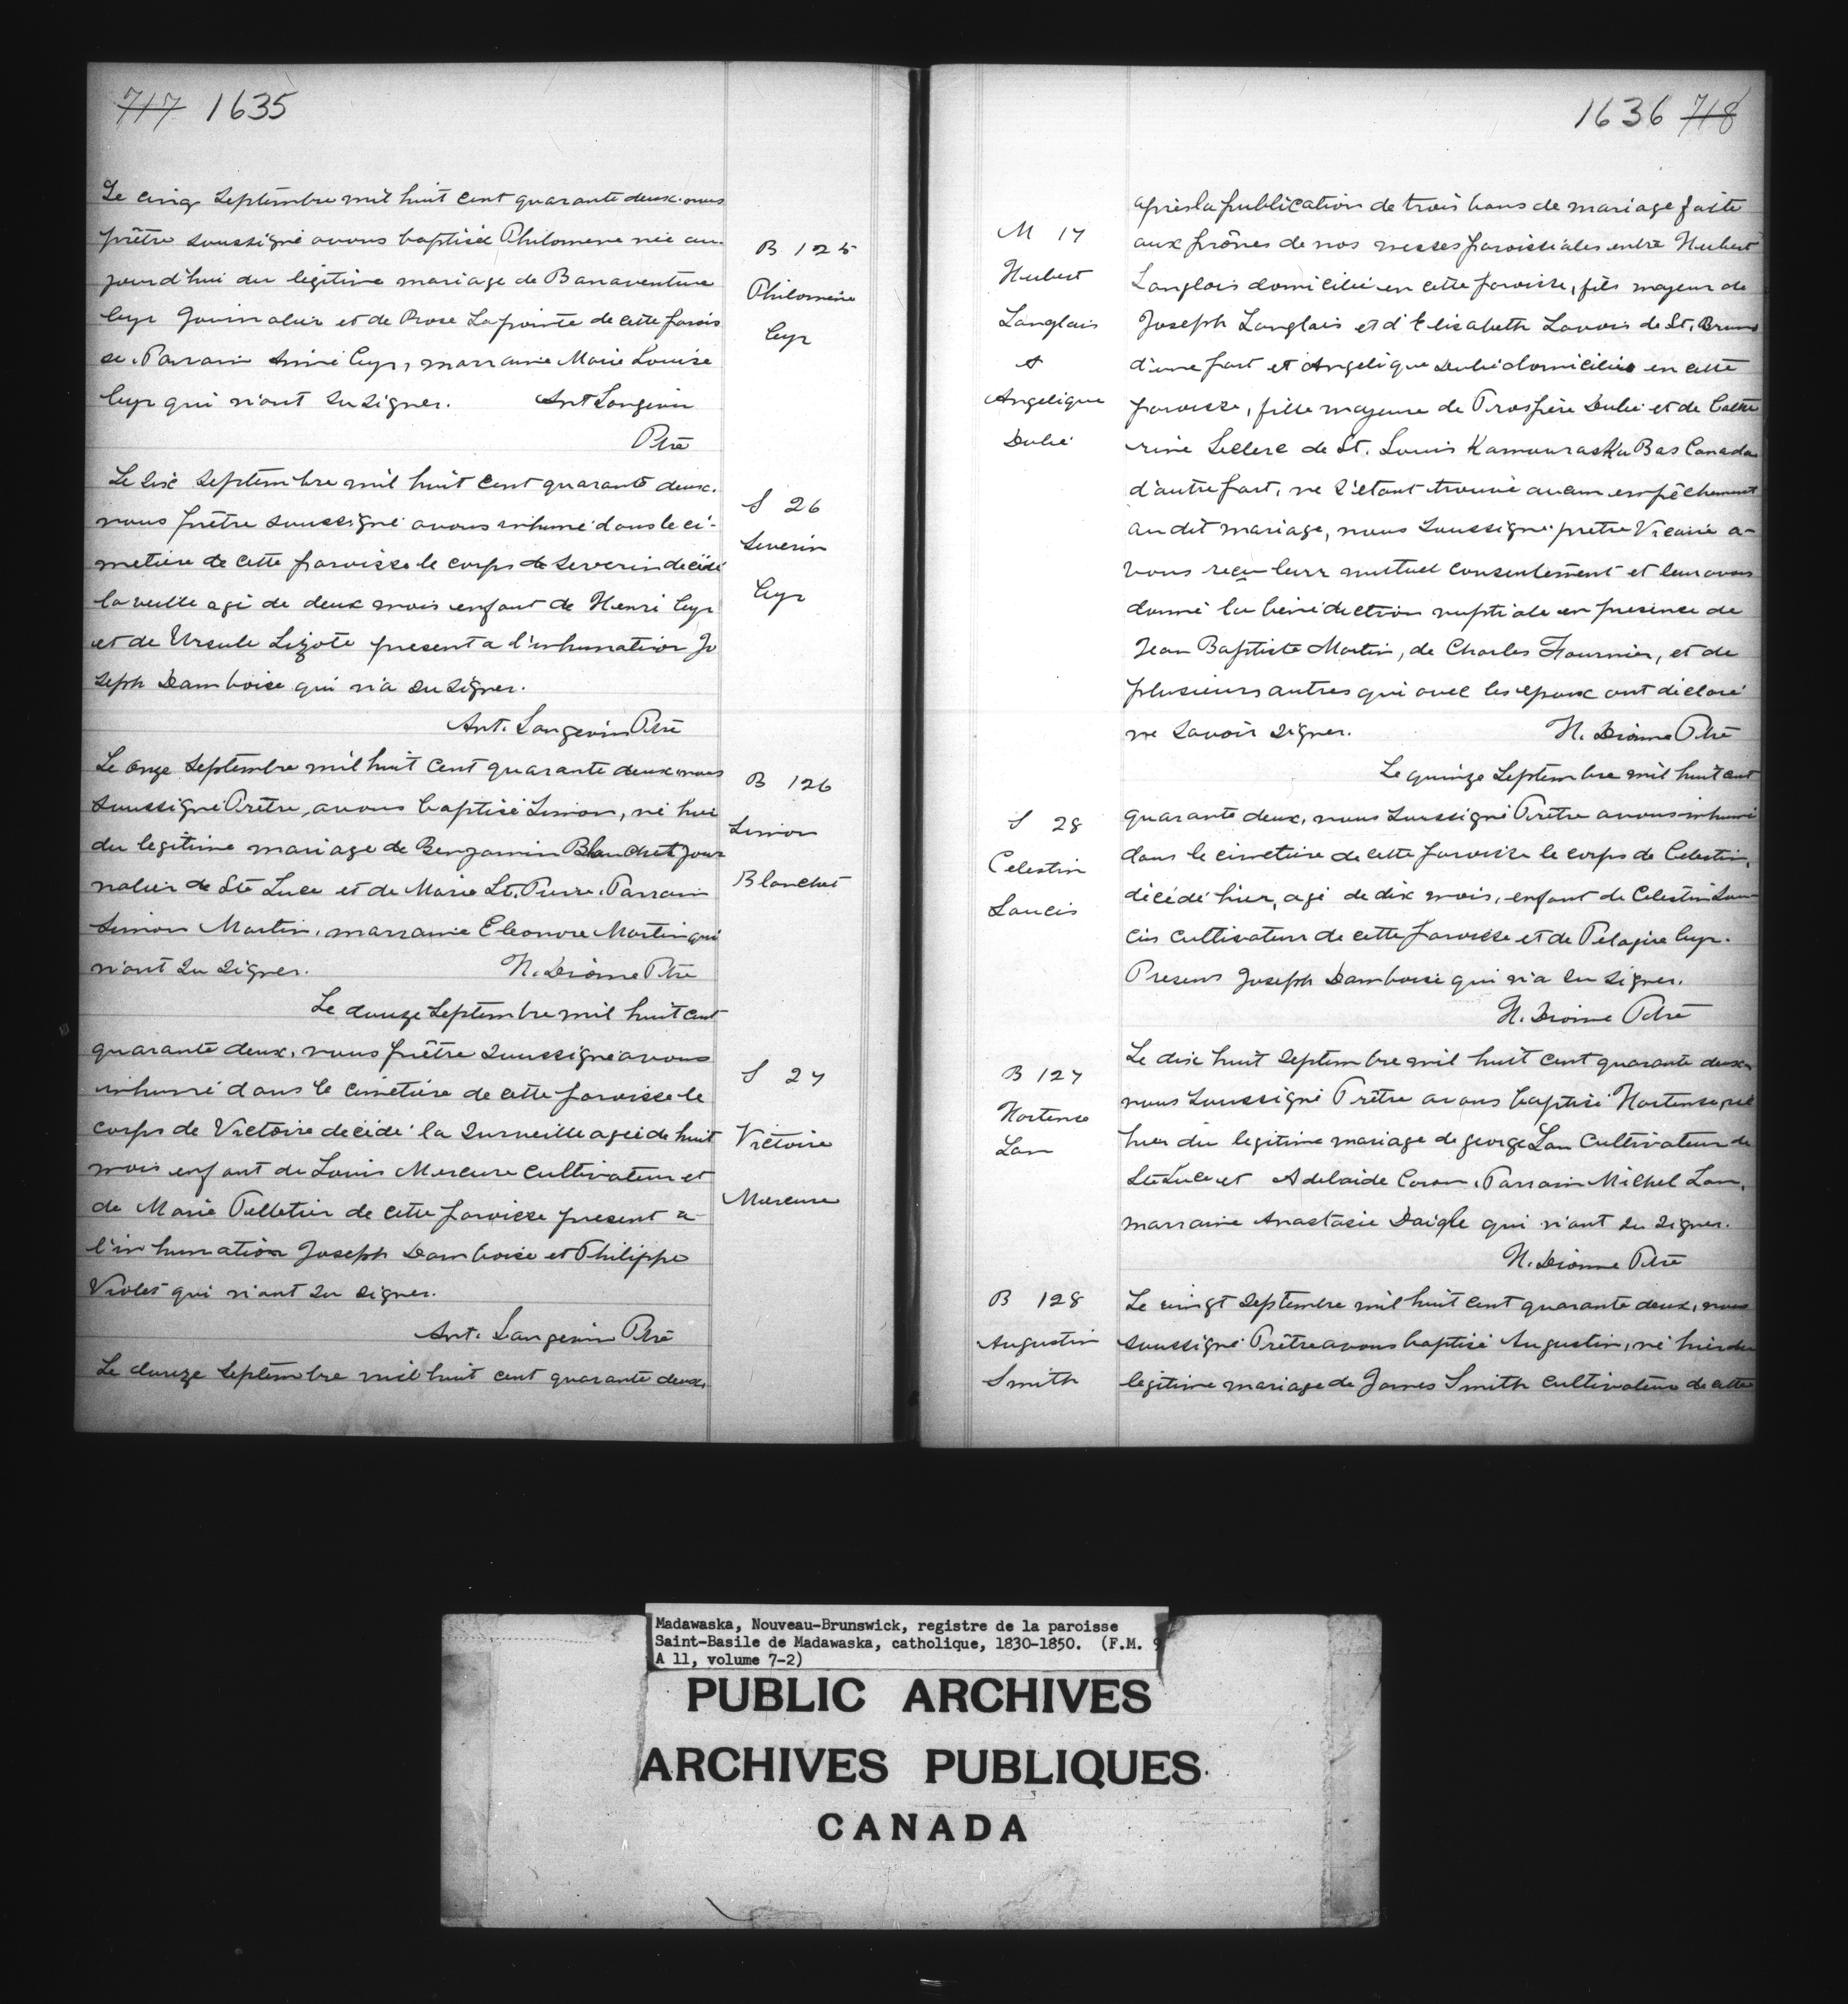 717 1635
Le cinq Septembre mil huit cent quarante deux nous
prêtre soussigné avons baptisé Philomene née au-
jourd'hui du legitime mariage de Bonaventure
Cyr Journalier et de Rose Lapointe de cette parois
se. Parrain Aimé Cyr, marraine Marie Louise
Cyr qui n'ont su signer. Ant Langevin
Ptre
B 125
Philomène
Cyr
Le six Septembre mil huit cent quarante deux.
nous prêtre soussigné avons inhumé dans le ci-
metiere de cette paroisse le corps de Severin décédé
la veille agé de deux mois enfant de Henri Cyr
et de Ursule Lizote present a l'inhumation Jo
seph Damboise qui n'a su signer.
Ant. Langevin Ptre
S 26
Severin
Cyr
Le onze Septembre mil huit cent quarante deux nous
soussigné Prêtre, avons baptisé Simon, né hier
du legitime mariage de Benjamin Blanchet jour
nalier de Ste Luce et de Marie St. Pierre. Parrain
Simon Martin, marraine Eleonore Martin qui
n'ont su signer. H. Dionne Ptre
B 126
Simon
Blanchet
Le douze Septembre mil huit cent
quarante deux, nous prêtre soussigné avons
inhumé dans le cimetière de cette paroisse le
corps de Victoire décédé la surveille agée de huit
mois enfant de Louis Mercure cultivateur et
de Marie Pelletier de cette paroisse present a
l'inhumation Joseph Damboise et Philippe
Violet qui n'ont su signer.
Ant. Langevin Ptre
S 27
Victoire
Mercure
Le douze Septembre mil huit cent quarante deux,
1636 718
après la publication de trois bans de mariage faite
aux prônes de nos messes paroissiales entre Hubert
Langlois domicilié en cette paroisse, fils majeur de
Joseph Langlais et d'Elisabeth Lavois de St. Bruno
d'une part et Angelique Dubé domiciliée en cette
paroisse, fille majeure de Prospère Dubé et de Cathe
rine Leclerc de St. Louis Kamouraska Bas Canada
d'autre part, ne s'étant trouvé aucun empêchement
au dit mariage, nous soussigné prêtre Vicaire a-
vons reçu leur mutuel consentement et leur avons
donné la bénédiction nuptiale en presence de
Jean Baptiste Martin, de Charles Fournier, et de
plusieurs autres qui avec les epoux ont déclaré
ne savoir signer. H. Dionne Ptre
M 17
Hubert
Langlais
&
Angelique
Dubé
Le quinze Septembre mil huit cent
quarante deux, nous soussigné Prêtre avons inhumé
dans le cimetière de cette paroisse le corps de Celestin,
décédé hier, agé de dix mois, enfant de Celestin Sau-
cis cultivateur de cette paroisse et de Pelagire Cyr.
Presens Joseph Damboise qui n'a su signer.
H. Dionne Ptre
S 28
Celestin
Saucis
Le dix huit Septembre mil huit cent quarante deux
nous soussigné Prêtre avons baptisé Hortense née
hier du legitime mariage de george Lan cultivateur de
Ste Luce et Adelaide Coron. Parrain Michel Lan,
marraine Anastasie Daigle qui n'ont su signer.
H. Dionne Ptre
B 127
Hortense
Lan
Le vingt Septembre mil huit cent quarante deux, nous
soussigné Prêtre avons baptisé Augustin, né hier du
legitime mariage de James Smith cultivateur de cette
B 128
Augustin
Smith
Madawaska, Nouveau-Brunswick, registre de la paroisse
Saint-Basile de Madawaska, catholique, 1830-1850. (F.M. 9
A 11, volume 7-2)
PUBLIC ARCHIVES
ARCHIVES PUBLIQUES
CANADA